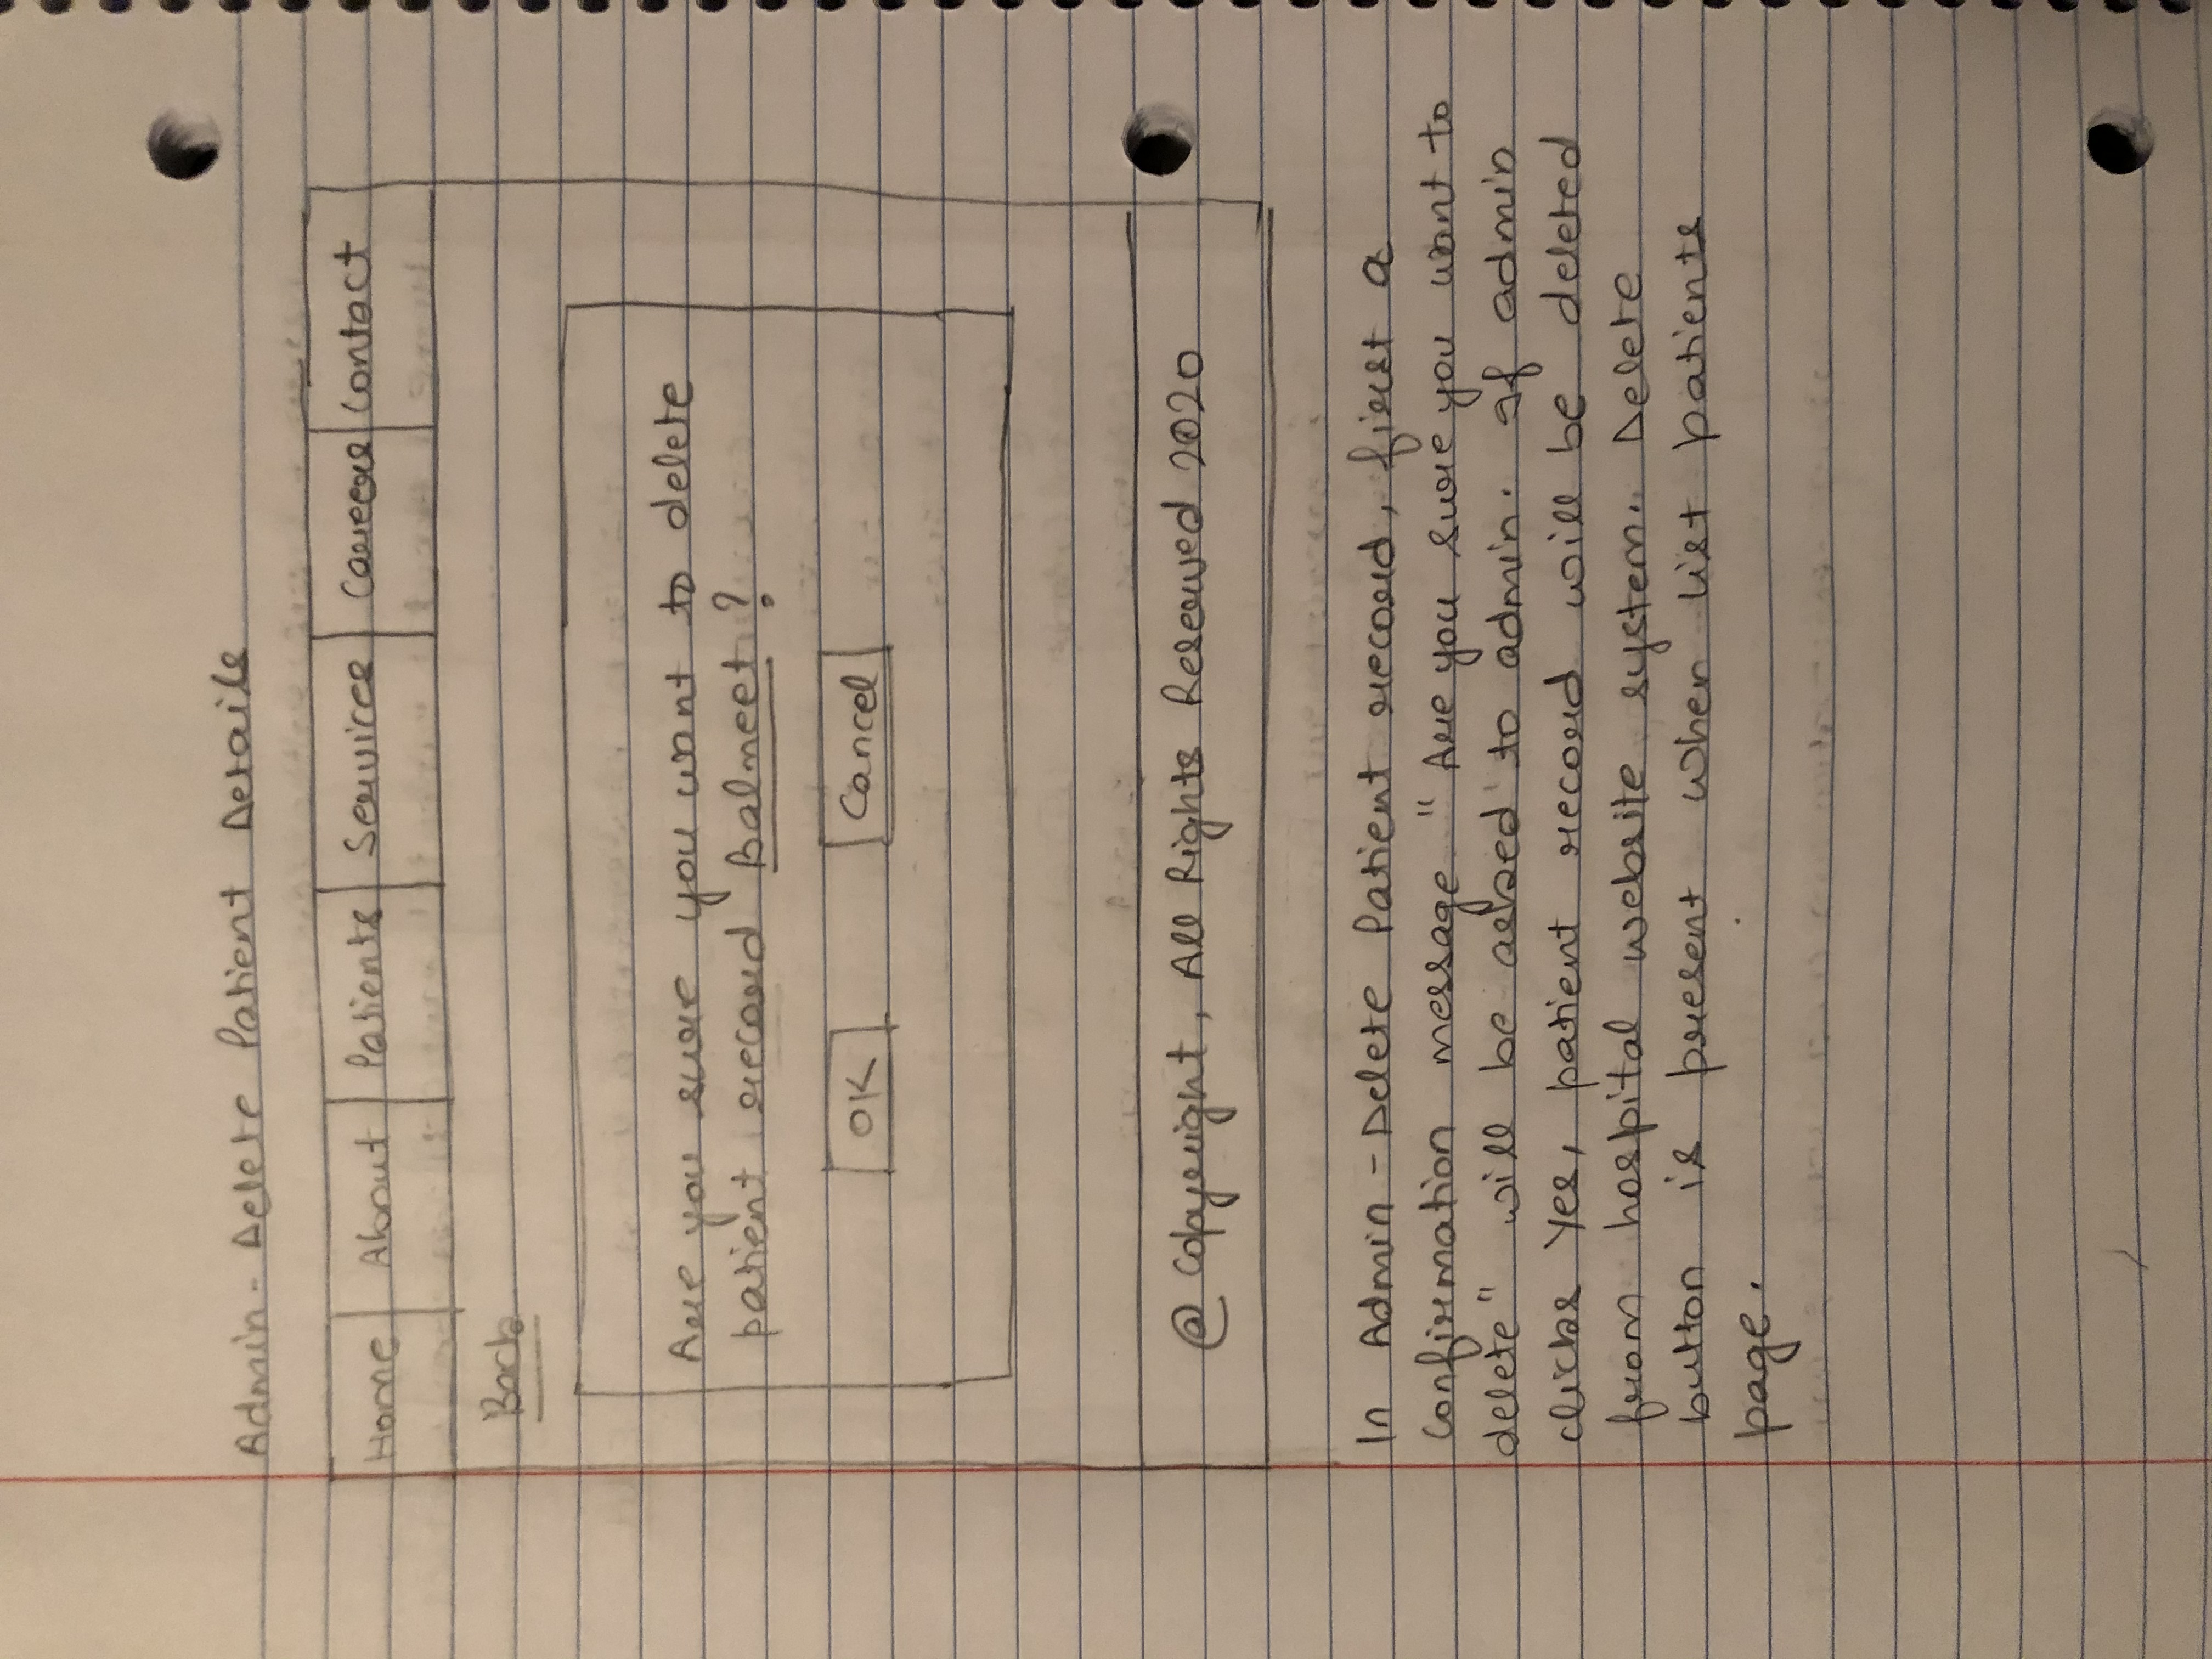 Admin - Delete Patient Details
Home About Patients Services Careers Contact
Back
Are you sure you want to delete
patient record Balmeet ?
OK Cancel
@ Copyright, All Rights Reserved 2020
In Admin - Delete Patient record, first a
confirmation message "Are you sure you want to
delete" will be asked to admin. If admin
clicks Yes, patient record will be deleted
from hospital website system. Delete
button is present when list patients
page.